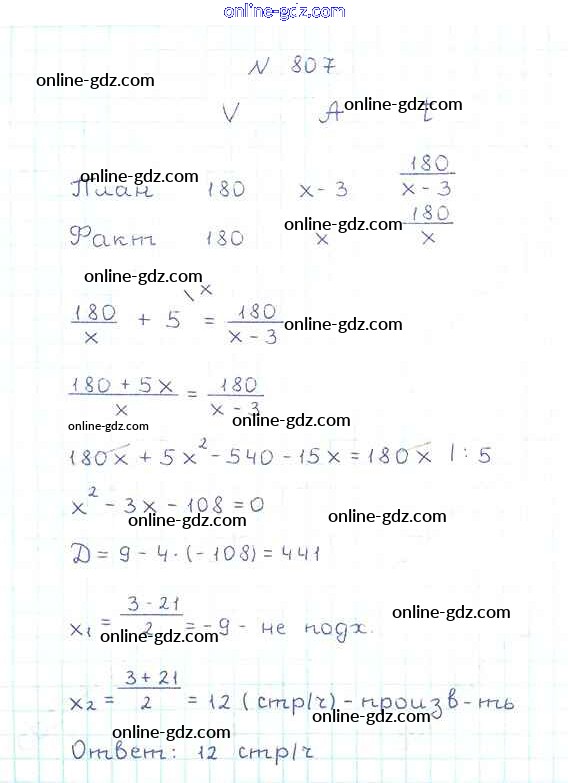 online-gdz.com
N 807
online-gdz.com
V A t
online-gdz.com
План 180 x - 3 180/(x - 3)
online-gdz.com
Факт 180 x 180/x
online-gdz.com
online-gdz.com
180/x + 5 \x = 180/(x - 3)
online-gdz.com
(180 + 5x)/x = 180/(x - 3)
online-gdz.com
online-gdz.com
180x + 5x² - 540 - 15x = 180x |: 5
x² - 3x - 108 = 0
online-gdz.com
online-gdz.com
Д = 9 - 4·(- 108) = 441
online-gdz.com
x₁ = (3 - 21)/2 = -9 - не подх.
online-gdz.com
x₂ = (3 + 21)/2 = 12 (стр/ч) - произв-ть
online-gdz.com
online-gdz.com
Ответ: 12 стр/ч